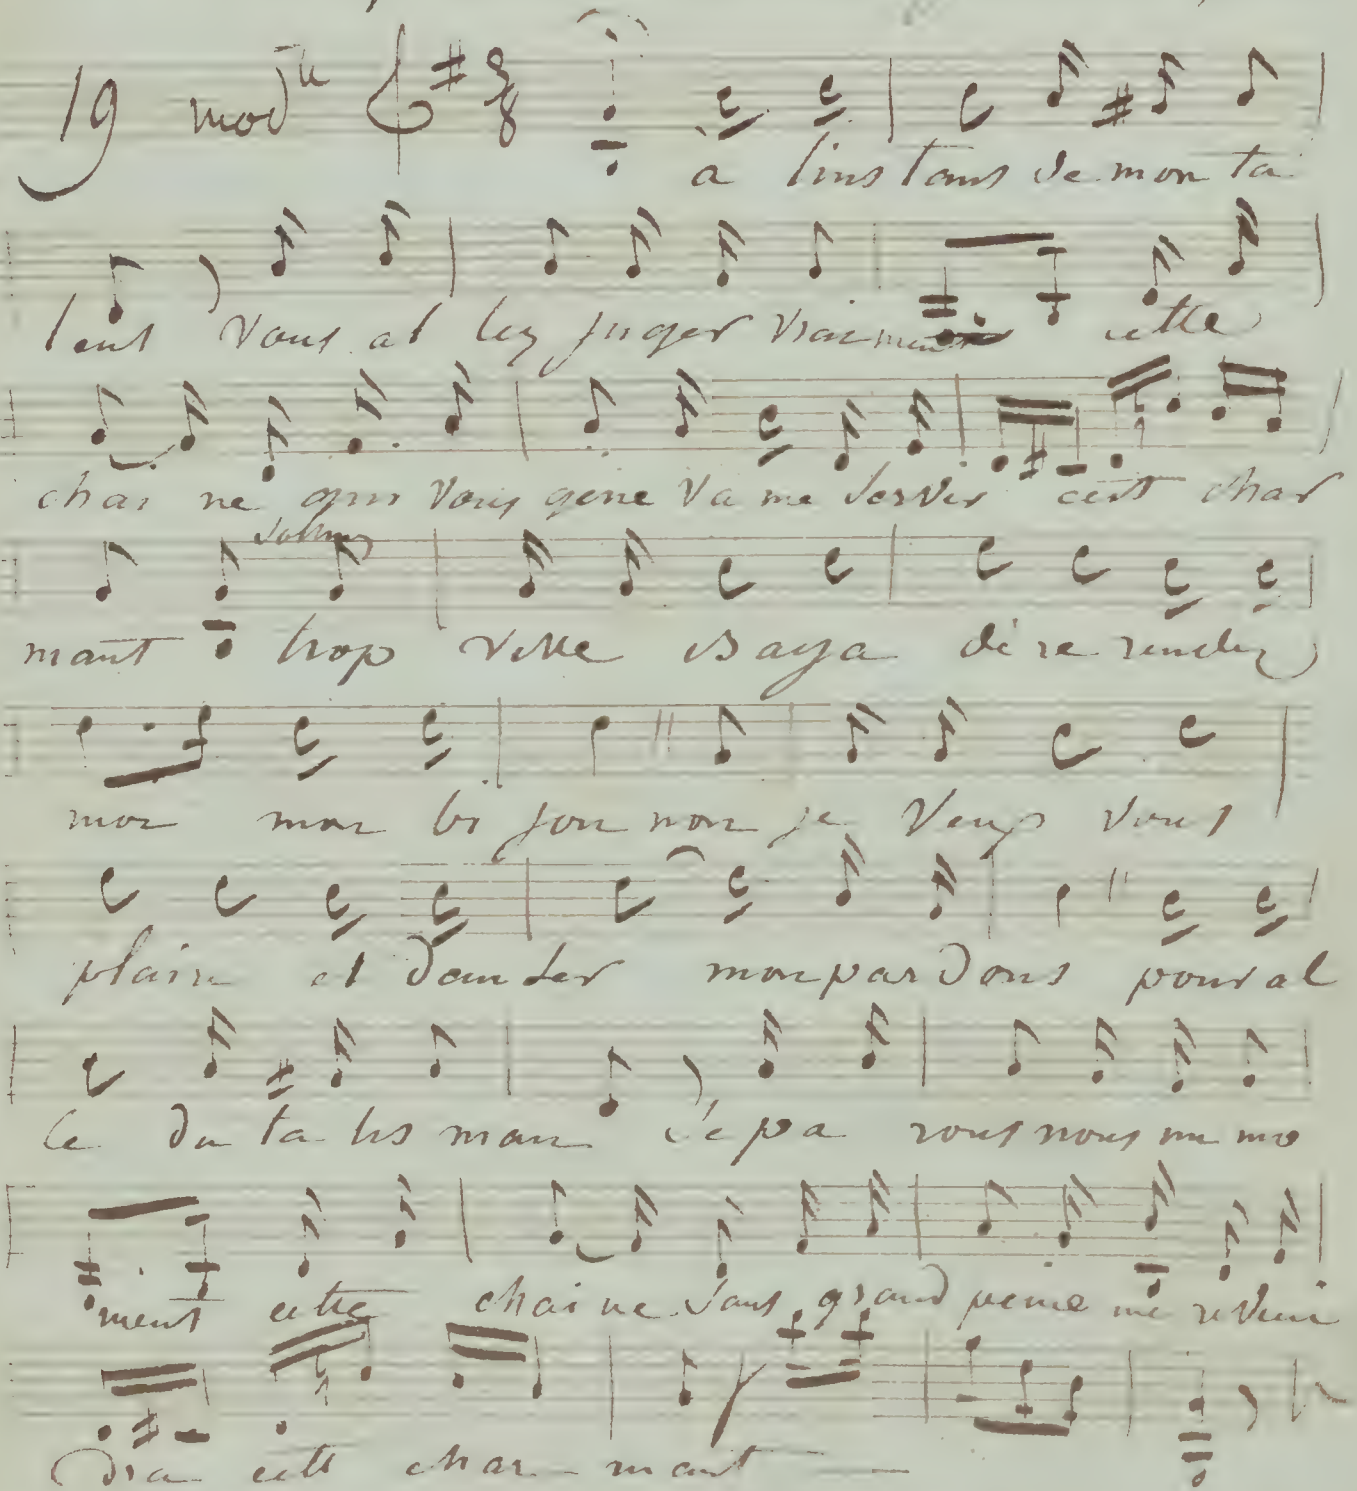 19 mod<sup>to</sup>
à lins tans de mon ta
lent vous al lez juger vraiment cette
chai ne qui vous gêne va me servir cest char
mant trop vitte dire rendez
moi mon bi jou non je veux vous
plaire et mon par dons pour al
le du ta lis man sé pa rons nous un mo
ment cette chai ne sans grand peine me revien
dra cest char - mant